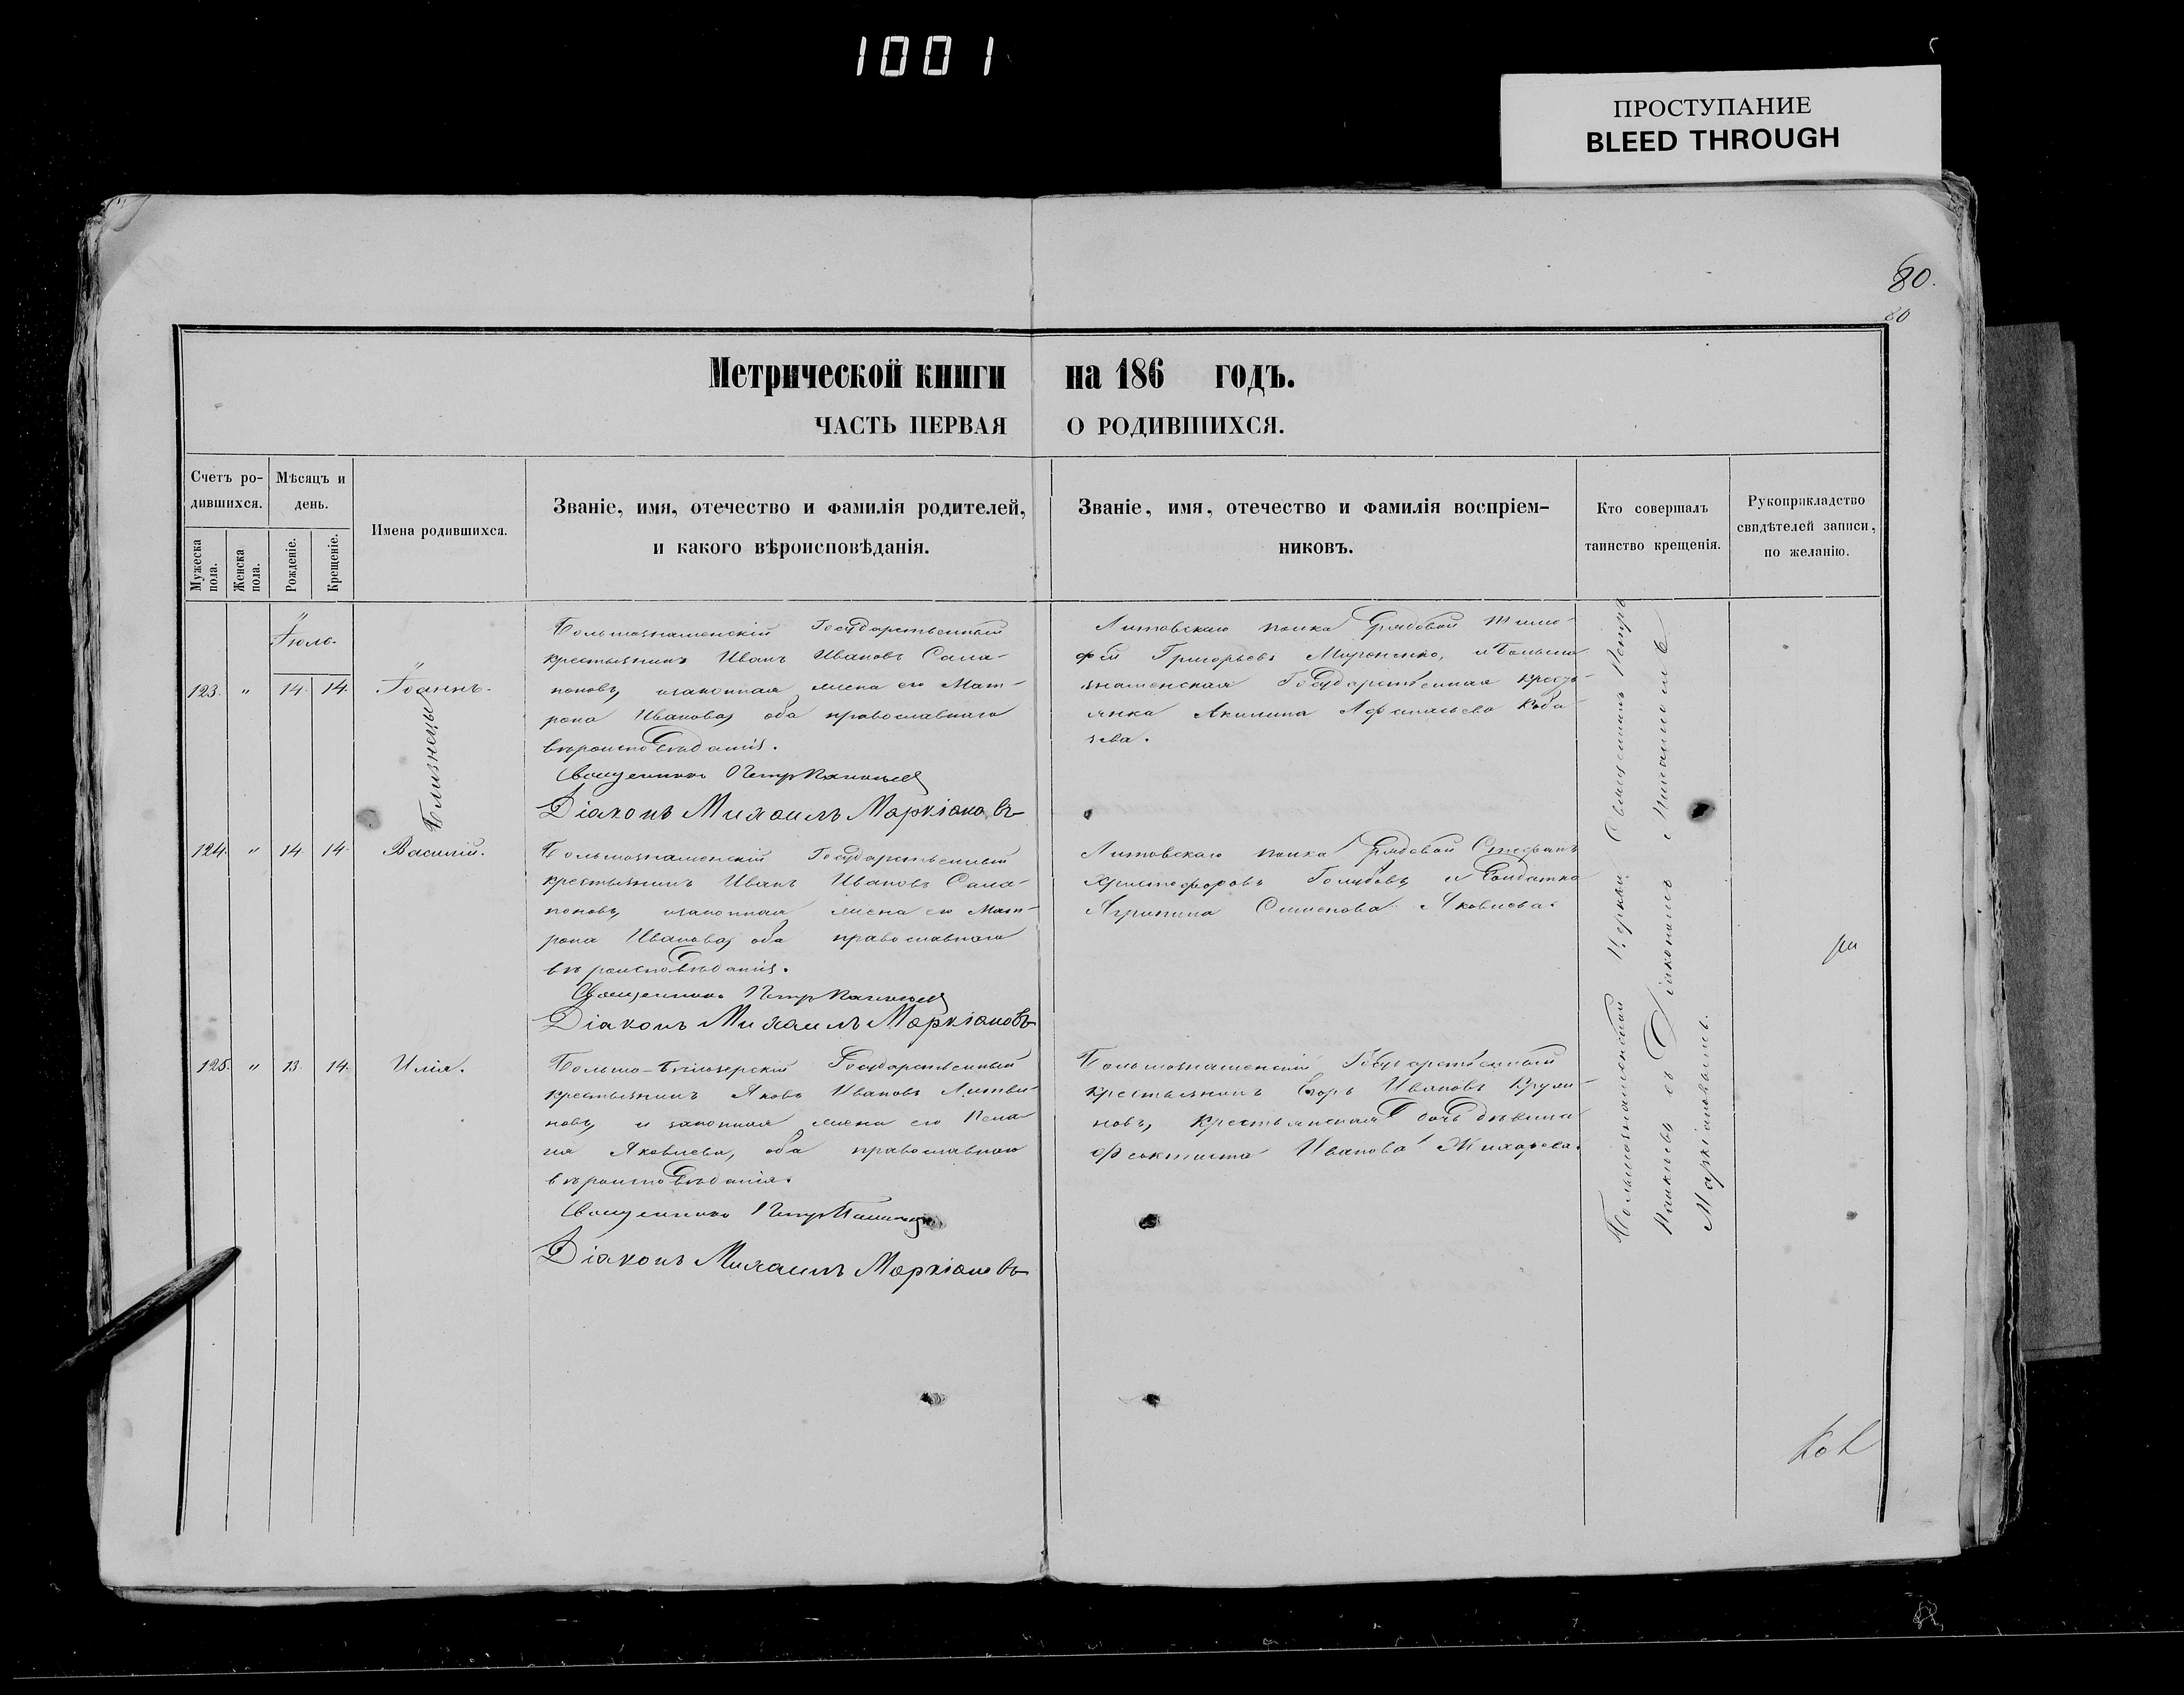 1001
ПРОСТУПАНИЕ
BLEED THROUGH
80.
80
Метрической книги на 186 годъ.
ЧАСТЬ ПЕРВАЯ О РОДИВШИХСЯ.
Счетъ ро-
дившихся.
Мужеска
пола.
Женска
пола.
Мѣсяцъ и
день.
Рожденіе.
Крещеніе.
Имена родившихся.
Званіе, имя, отечество и фамилія родителей,
и какого вѣроисповѣданія.
Званіе, имя, отечество и фамилія воспріем-
никовъ.
Кто совершалъ
таинство крещенія.
Рукоприкладство
свидѣтелей записи,
по желанію.
Іюль.
123. " 14. 14. Іоаннъ.
Близнецы
Большознаменскій Государственный
крестьянинъ Иванъ Ивановъ Сала-
поновъ, и законная жена его Мат-
рона Иванова, оба православнаго
вѣроисповѣданія.
Священникъ Петръ
Діаконъ Михаилъ Маркіановъ
Литовскаго полка Рядовой Тимо-
фей Григорьевъ Мироненко, и Больше
знаменская Государственная кресть-
янка Акилина Афанасьева Кобы-
зева.
124. " 14. 14. Василій.
Большознаменскій Государственный
крестьянинъ Иванъ Ивановъ Сала-
поновъ, и законная жена его Мат-
рона Иванова, оба православнаго
вѣроисповѣданія.
Священникъ Петръ
Діаконъ Михаилъ Маркіановъ
Литовскаго полка Рядовой Стефанъ
Христофоровъ Голубовъ, и Солдатка
Агрипина Симонова Яковлева.
125. " 13. 14. Илія.
Больше-Бѣлозерскій Государственный
крестьянинъ Яковъ Ивановъ Литви-
новъ, и законная жена его Пела-
гія Яковлева, оба православнаго
вѣроисповѣданія.
Священникъ Петръ
Діаконъ Михаилъ Маркіановъ
Большознаменскій Государственный
крестьянинъ Егоръ Ивановъ
новъ, Крестьянская дочь дѣвица
Феоктиста Иванова Жихарева.
Большознаменской Церкви Священникъ Петръ
съ Діакономъ Михаиломъ
Маркіановымъ.